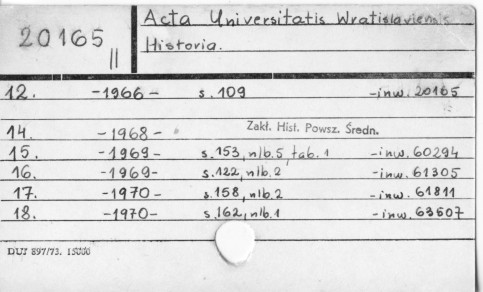 20165 II
Acta Universitatis Wratislaviensis
Historia.
12. -1966- s.109 -inw. 20165
14. -1968- Zakł. Hist. Powsz. Średn.
15. -1969- s.153, nlb.5, tab.1 -inw. 60294
16. -1969- s.122, nlb.2 -inw. 61305
17. -1970- s.158, nlb.2 -inw. 61811
18. -1970- s.162, nlb.1 -inw. 63607
DUJ 897/73. 15000